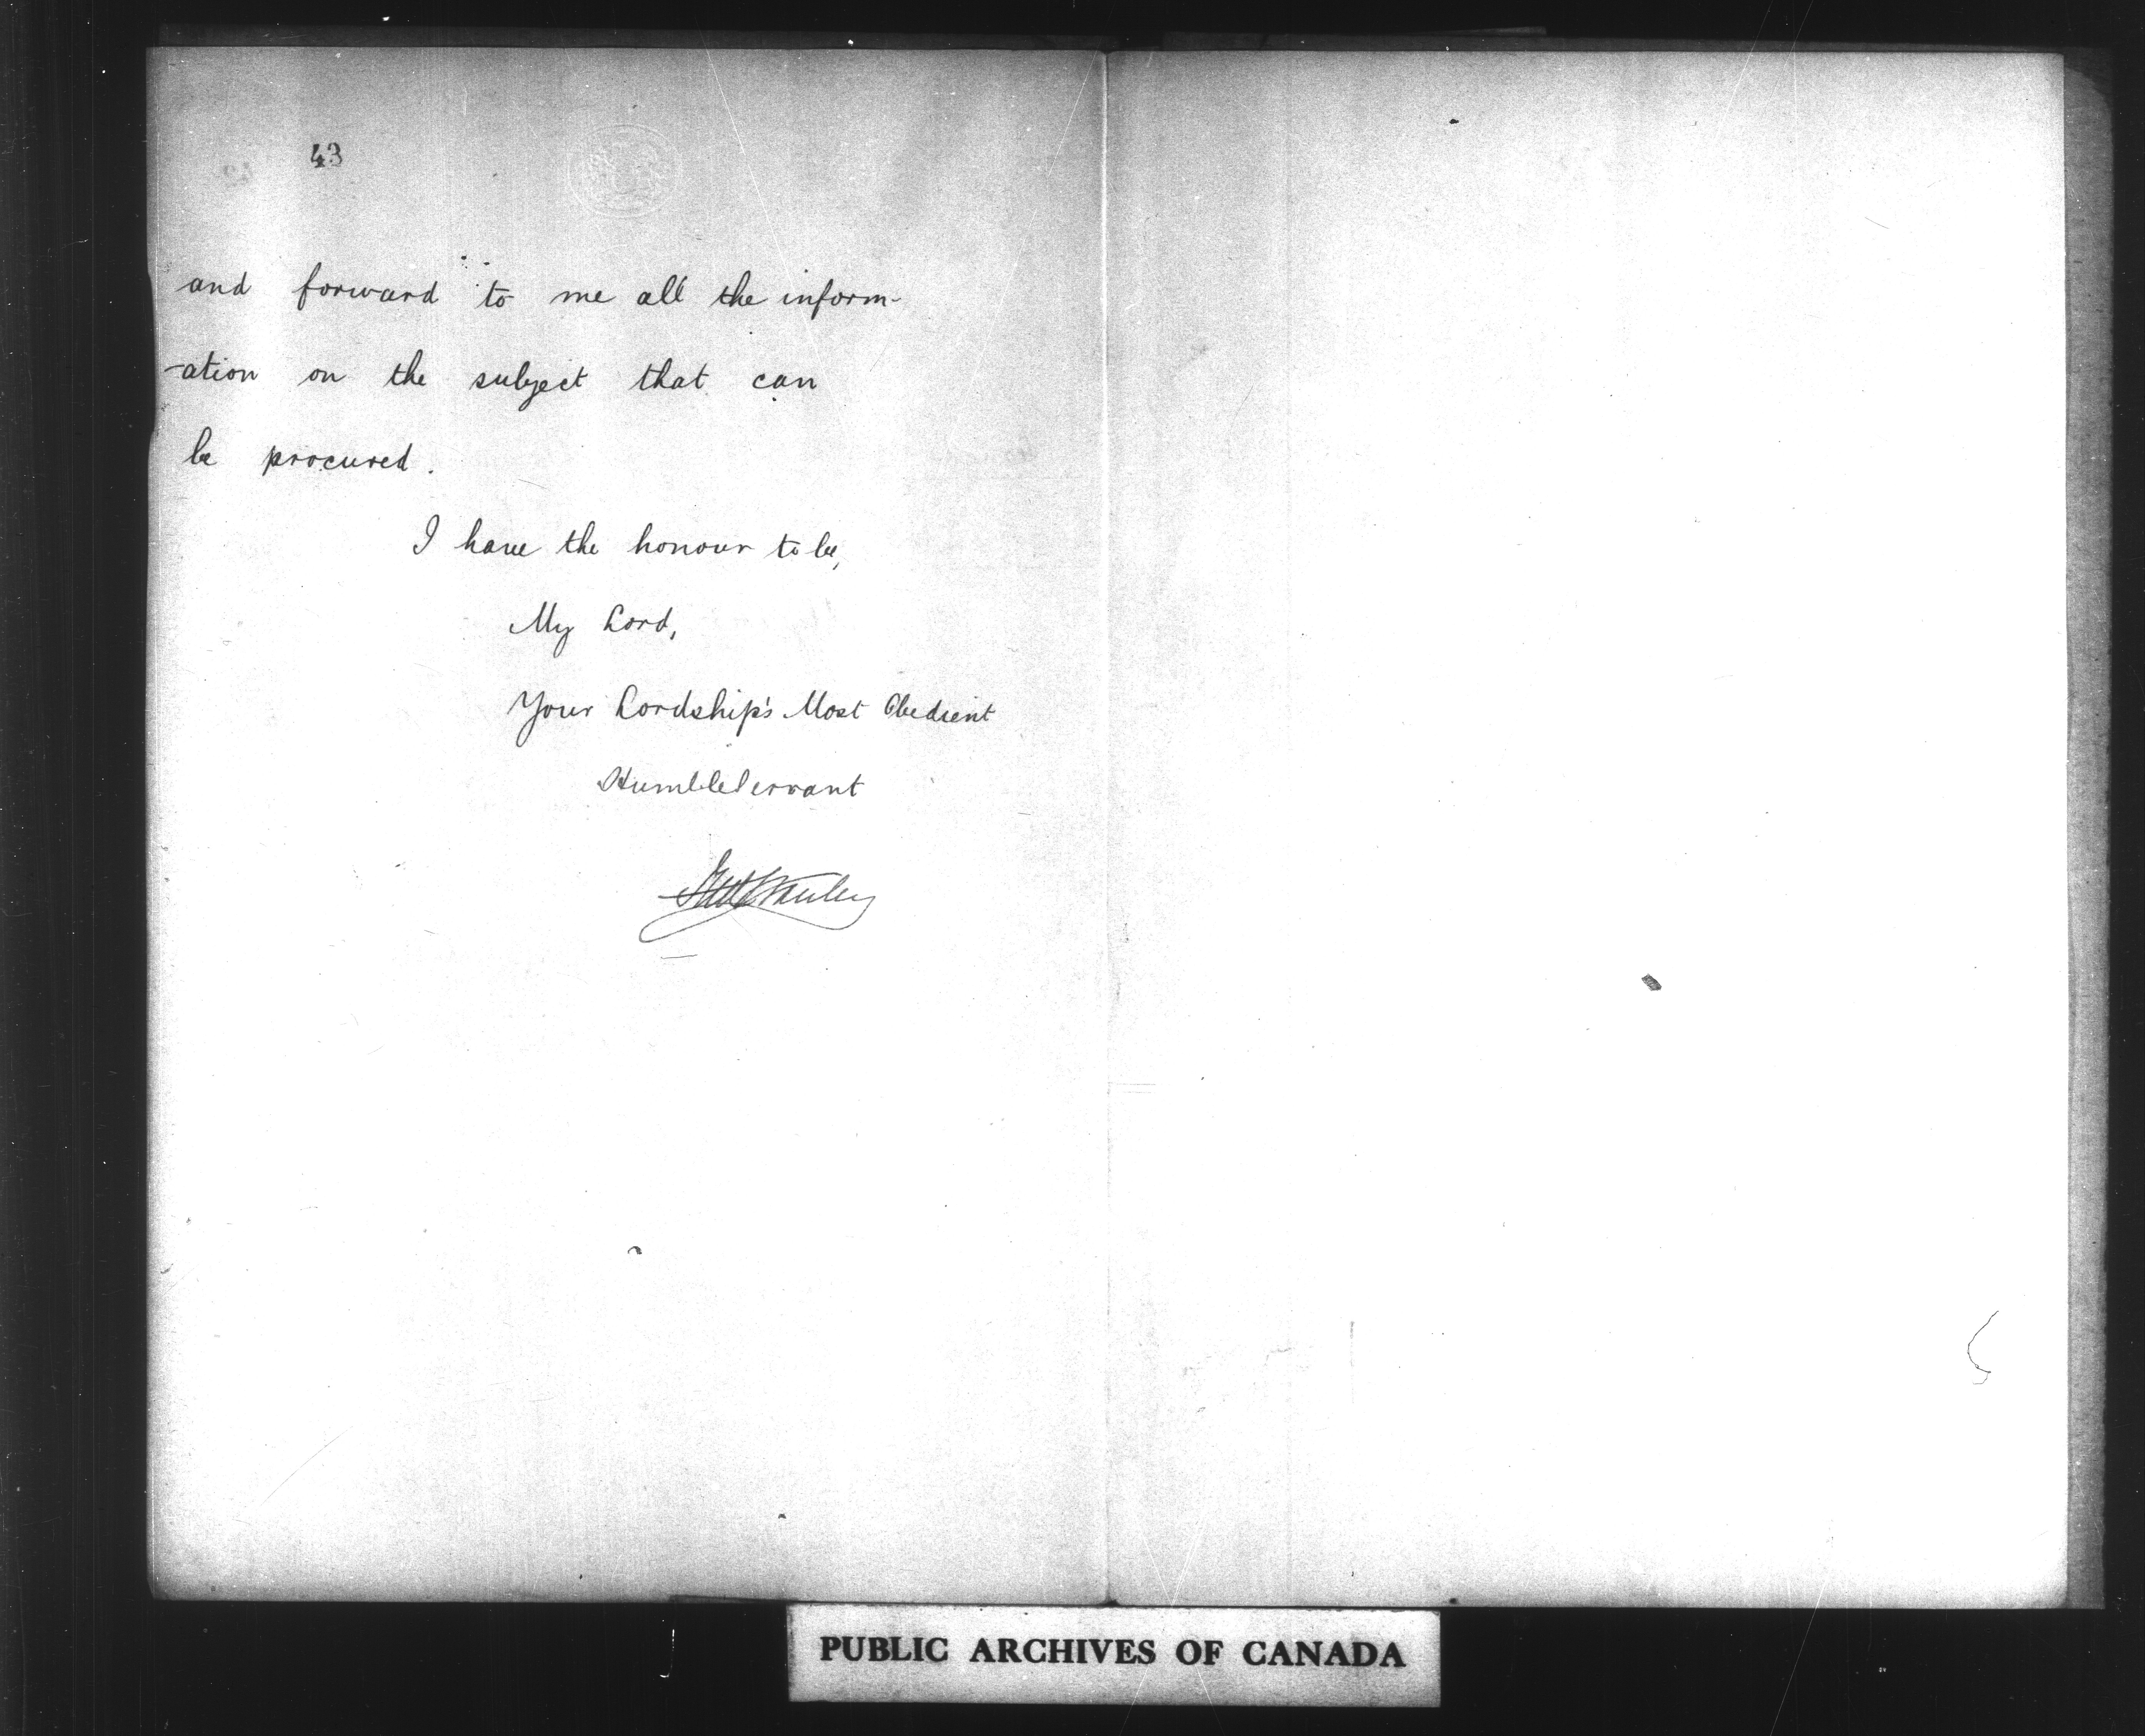 43
and forward to me all the inform-
-ation on the subject that can
be procured.
I have the honour to be,
My Lord,
Your Lordship's Most Obedient
Humble Servant
PUBLIC ARCHIVES OF CANADA